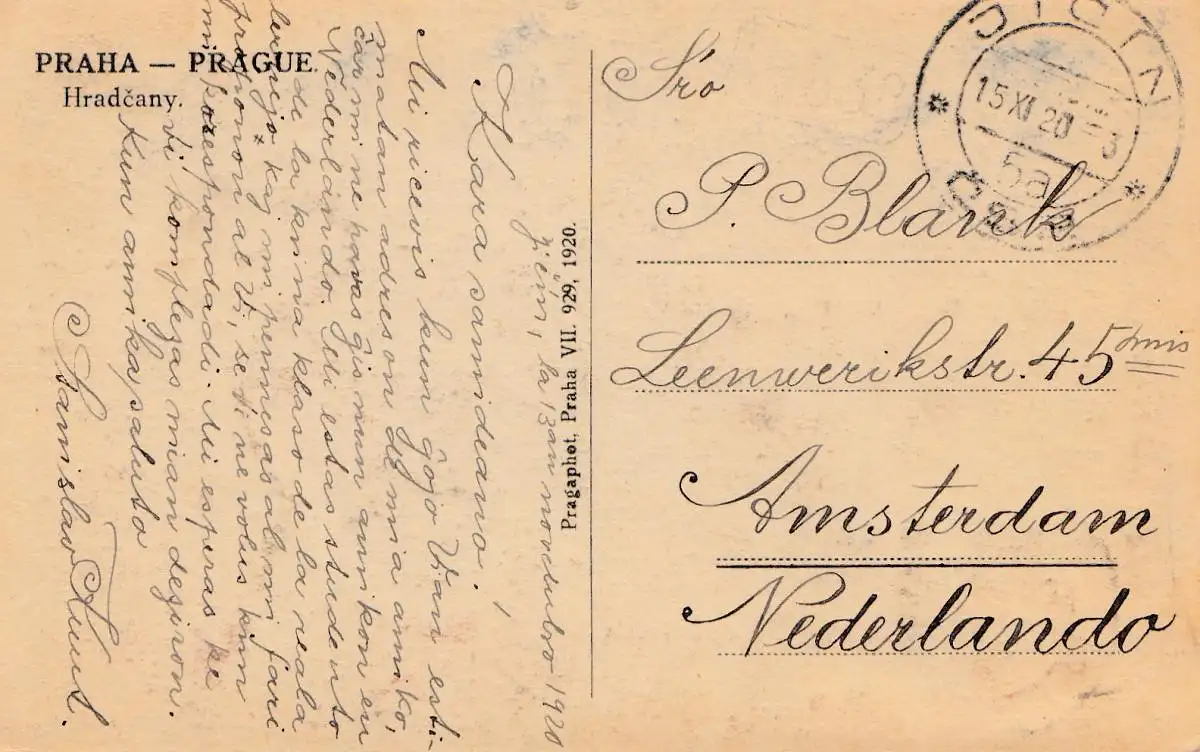 PRAHA — PRAGUE.
Hradčany.
Pragaphot, Praha VII. 929, 1920.
Jičín, la 13an novembro 1920
Kara samideano!
Mi ricevis kun ĝojo Vian esti-
matan adreson de mia amiko,
ĉar mi ne havas ĝis nun amikon en
Nederlando. Mi estas studento
de la kvina klaso de la reala
lernejo kaj mi permesas al mi fari
proponon al Vi, se Vi ne volus kun
mi korespondadi. Mi esperas ke
Vi komplezas mian deziron.
Kun amika saluto
Stanislav
S'ro
P. Blank
Leenwerikstr. 45
Amsterdam
Nederlando
JIČÍN
15 XI 20
3
5a